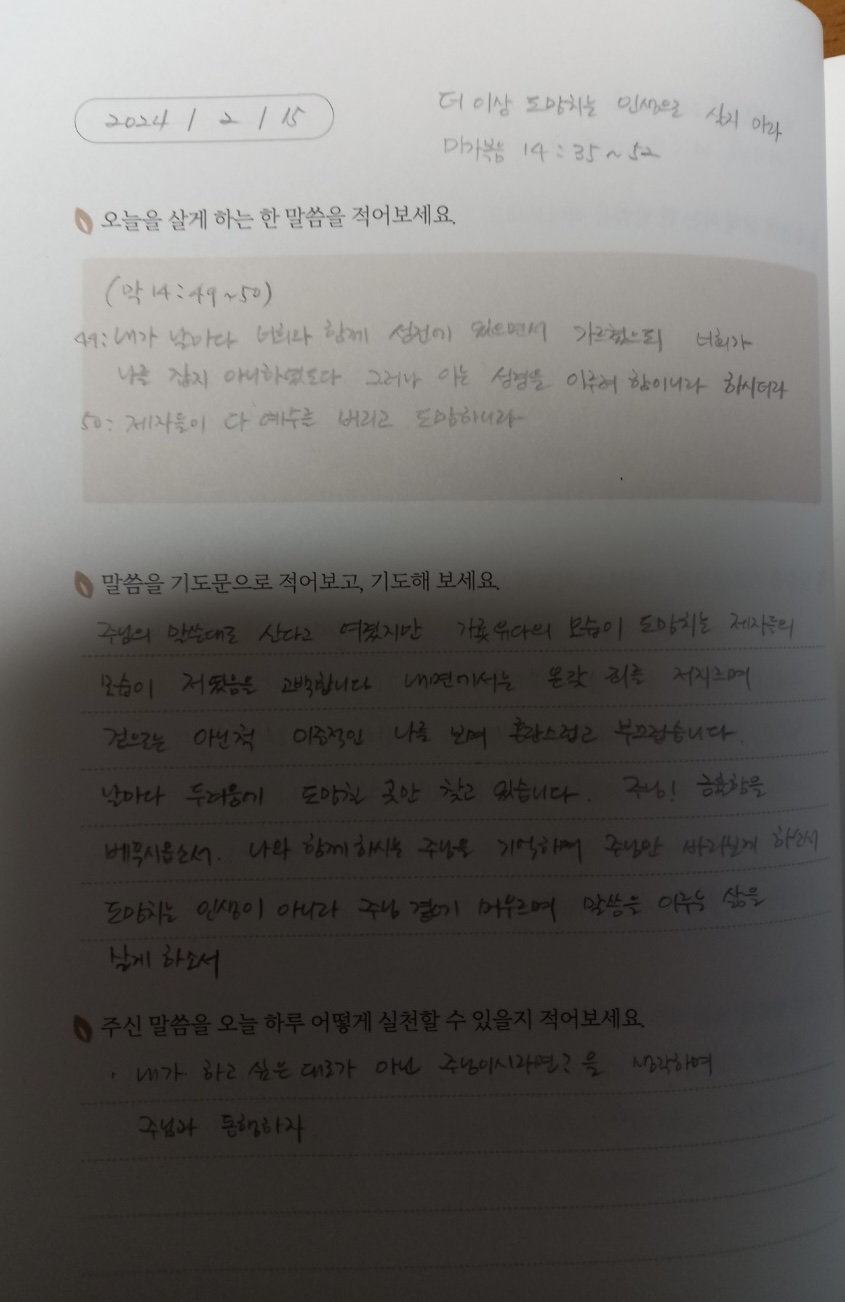 2024 / 2 / 15
더 이상 도망치는 인생으로 살지 마라
마가복음 14:35~52
오늘을 살게 하는 한 말씀을 적어보세요.
(막 14:49~50)
49: 내가 날마다 너희와 함께 성전에 있으면서 가르쳤으되 너희가
나를 잡지 아니하였도다 그러나 이는 성경을 이루려 함이니라 하시더라
50: 제자들이 다 예수를 버리고 도망하니라
말씀을 기도문으로 적어보고, 기도해 보세요.
주님의 말씀대로 산다고 여겼지만 가룟유다의 모습이 도망치는 제자들의
모습이 저였음을 고백합니다. 내면에서는 온갖 죄를 저지르며
겉으로는 아닌척 이중적인 나를 보며 혼란스럽고 부끄럽습니다.
날마다 두려움에 도망칠 곳만 찾고 있습니다. 주님! 긍휼함을
베푸시옵소서. 나와 함께 하시는 주님을 기억하며 주님만 바라보게 하소서
도망치는 인생이 아니라 주님 곁에 머무르며 말씀을 이루는 삶을
살게 하소서
주신 말씀을 오늘 하루 어떻게 실천할 수 있을지 적어보세요.
· 내가 하고 싶은 대로가 아닌 주님이시라면?을 생각하며
주님과 동행하자